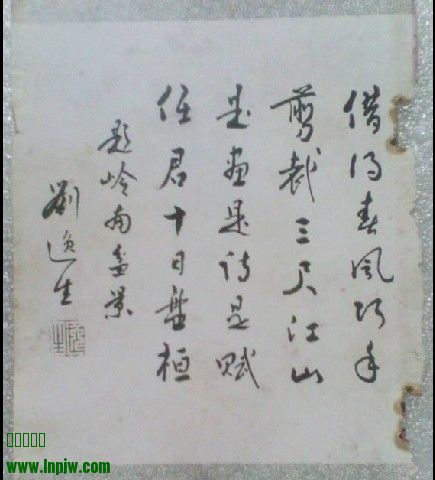 借得春风巧手
剪裁三尺江山
是画是诗是赋
任君十日盘桓
题岭南盆景
刘逸生
www.lnpjw.com